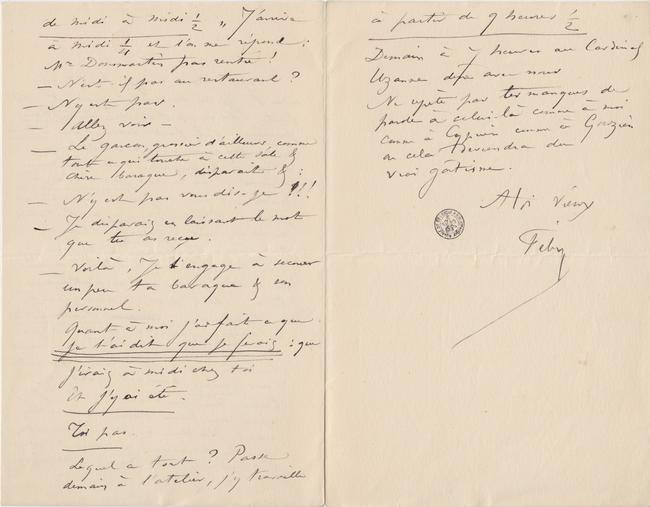 de midi à midi ½ „ J'arrive
à midi ¼ et l'on me répond :
Mr Dommartin pas rentré !
— N'est-il pas au restaurant ?
— N'y est pas.
— Allez voir —
— Le garçon, grossier d'ailleurs, comme
tout ce qui touche à cette sale &
chère baraque, disparait & :
— N'y est pas vous dis-je !!!
— Je disparais en laissant le mot
que tu as reçu.
— Voilà, Je t'engage à secouer
un peu ta baraque & son
personnel.
Quant à moi j'ai fait ce que
je t'ai dit que je ferais : que
j'irais à midi chez toi
Et j'y ai été.
Toi pas.
Lequel a tort ? Passe
demain à l'atelier, j'y travaille
à partir de 9 heures ½
Demain à 7 heures au Cardinal
Uzanne avec nous
Ne répète pas tes manques de
parole à celui-là comme à moi
comme à comme à Gouzien
ou cela deviendra du
vrai gâtisme.
A toi vieux
Fély